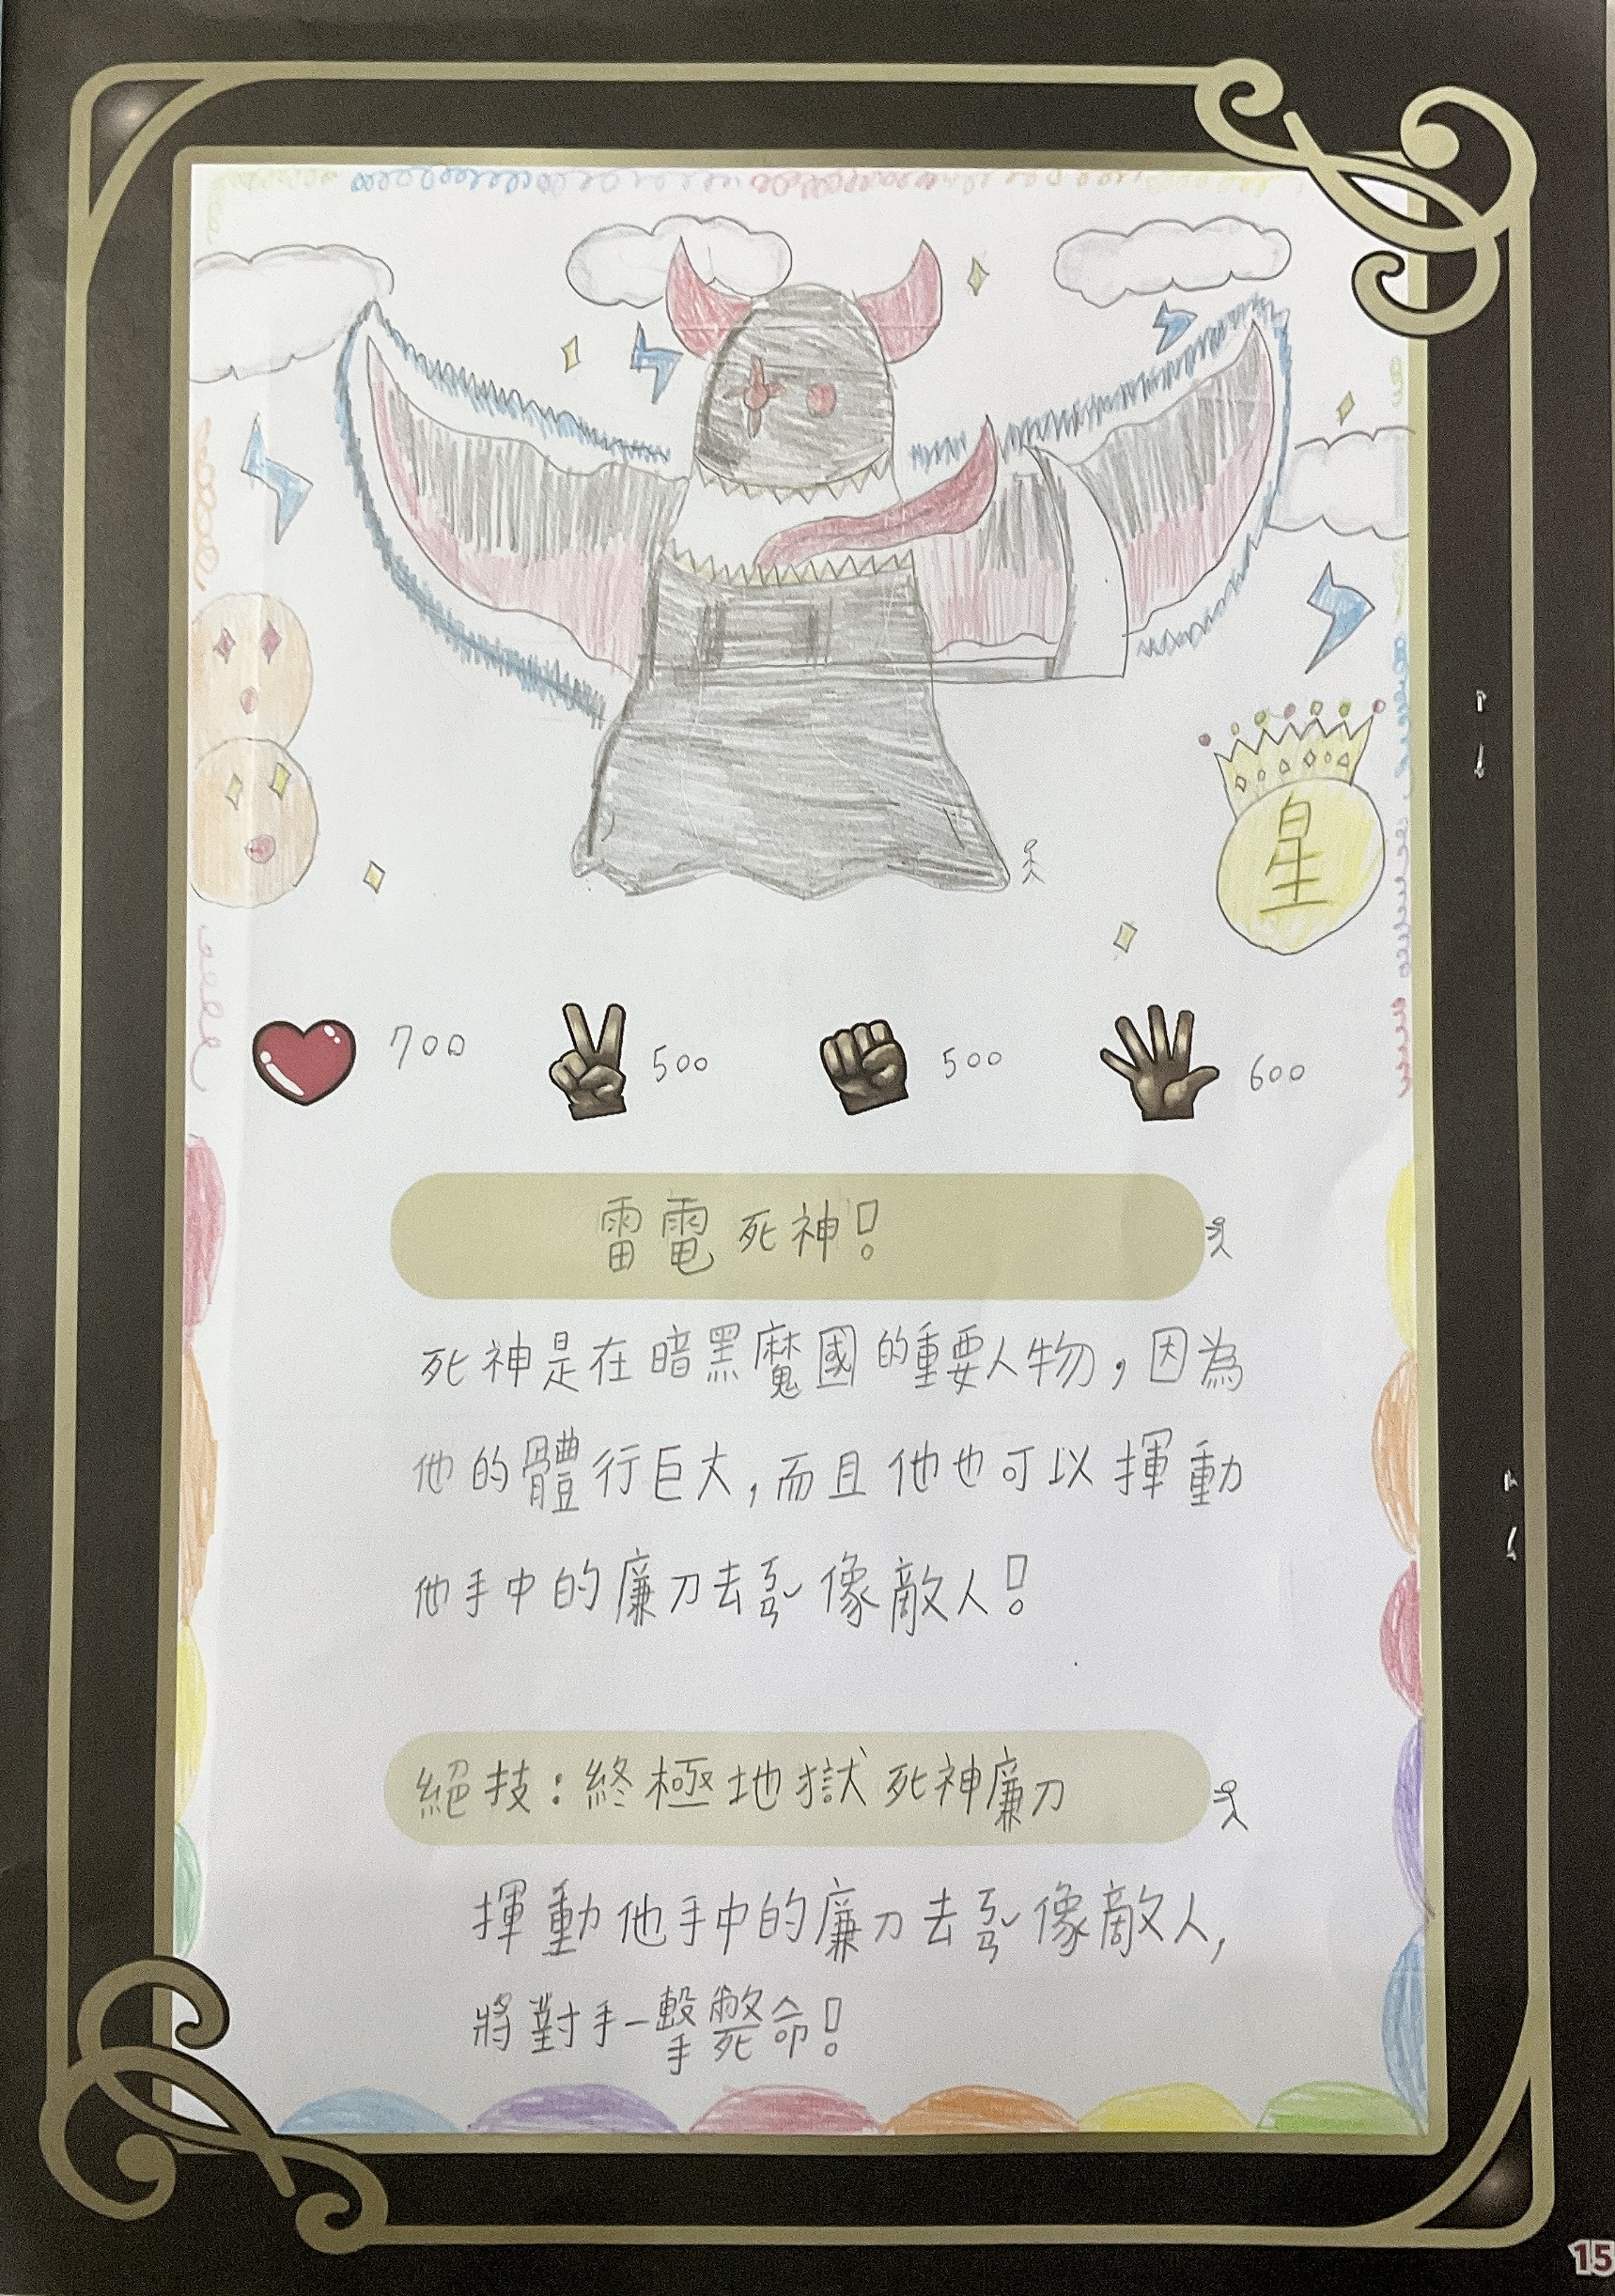 星
700 500 500 600
雷電死神！
死神是在暗黑魔國的重要人物，因為
他的體行巨大，而且他也可以揮動
他手中的廉刀去ㄎㄢˇ像敵人！
絕技：終極地獄死神廉刀
揮動他手中的廉刀去ㄎㄢˇ像敵人，
將對手一擊斃命！
15